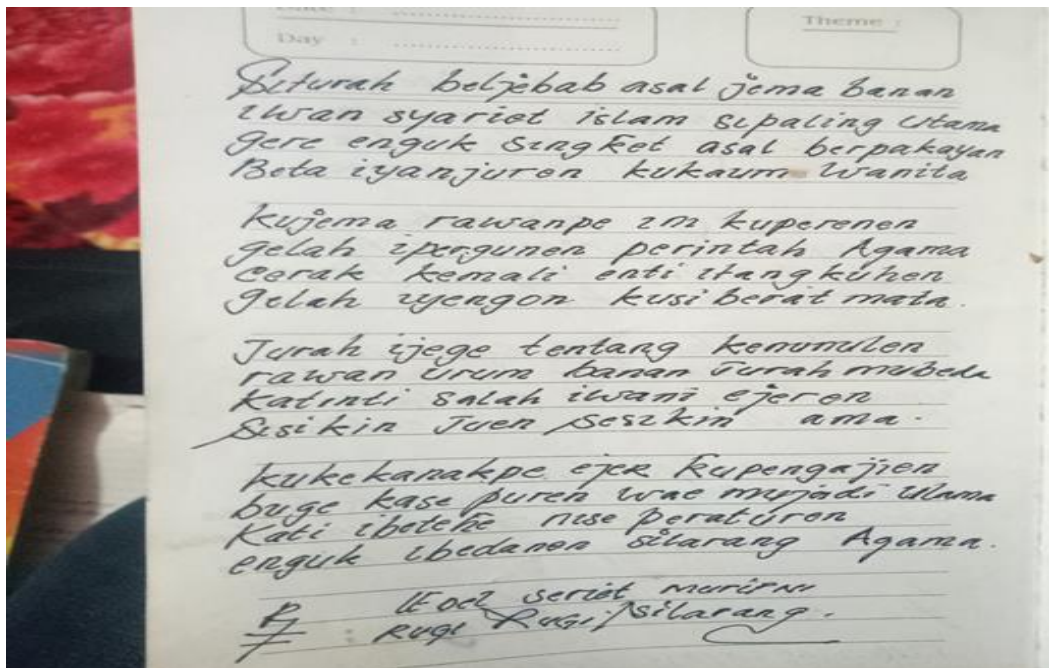 Date :
Day :
Theme :
Siturah beljebab asal jema banan
iwan syariet islam sipaling utama
gere enguk singket asal berpakayan
Beta iyanjuren kukaum wanita
kujema rawanpe ini kuperenen
gelah ipergunen perintah Agama
cerak kemali enti itangkuhen
gelah iyengon kusi berat mata.
Turah ijege tentang
rawan urum banan turah mubeda
katinti salah iwani ejeren
Sisikin Juen ama.
kukekanakpe ejer kupengajien
buge kase puren wae munjadi ulama
Kati ibetehe nise peraturen
enguk ibedanen silarang Agama.
seriet
Rugi Rugi silarang.